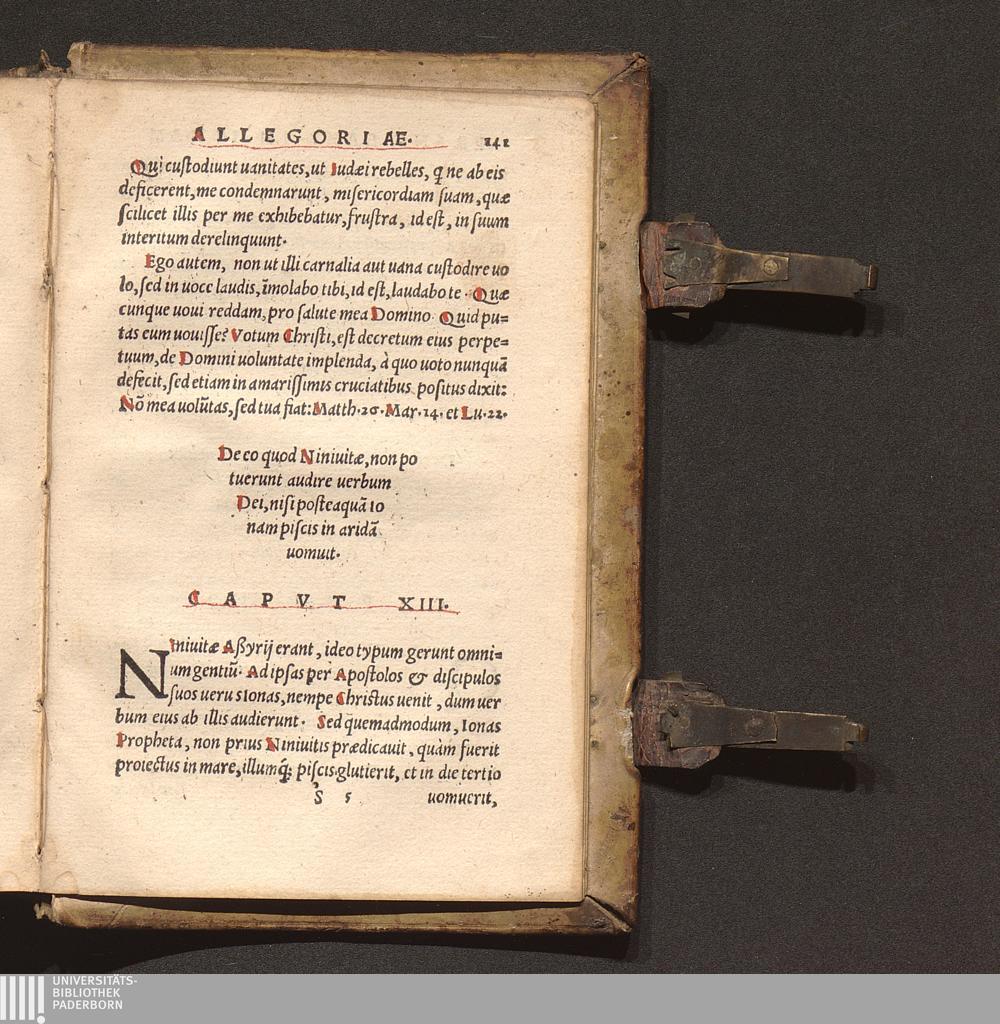 ALLEGORIAE. 141
Qui custodiunt uanitates, ut Iudæi rebelles, q̃ ne ab eis
deficerent, me condemnarunt, misericordiam suam, quæ
scilicet illis per me exhibebatur, frustra, id est, in suum
interitum derelinquunt.
Ego autem, non ut illi carnalia aut uana custodire uo
lo, sed in uoce laudis, ĩmolabo tibi, id est, laudabo te. Quæ
cunque uoui reddam, pro salute mea Domino. Quid pu=
tas eum uouisse? Votum Christi, est decretum eius perpe=
tuum, de Domini uoluntate implenda, à quo uoto nunquã
defecit, sed etiam in amarissimis cruciatibus positus dixit:
Nõ mea volũtas, sed tua fiat: Matth. 26. Mar. 14. et Lu. 22.
De eo quod Niniuitæ, non po
tuerunt audire uerbum
Dei, nisi posteaquã Io
nam piscis in aridã
uomuit.
CAPVT XIII.
Niniuitæ Aßyrij erant, ideo typum gerunt omni=
um gentiũ. Ad ipsas per Apostolos & discipulos
suos uerus Ionas, nempe Christus uenit, dum uer
bum eius ab illis audierunt. Sed quemadmodum, Ionas
Propheta, non prius Niniuitis prædicauit, quàm fuerit
proiectus in mare, illumq́; piscis glutierit, et in die tertio
S 5 uomuerit,
UNIVERSITÄTS-
BIBLIOTHEK
PADERBORN